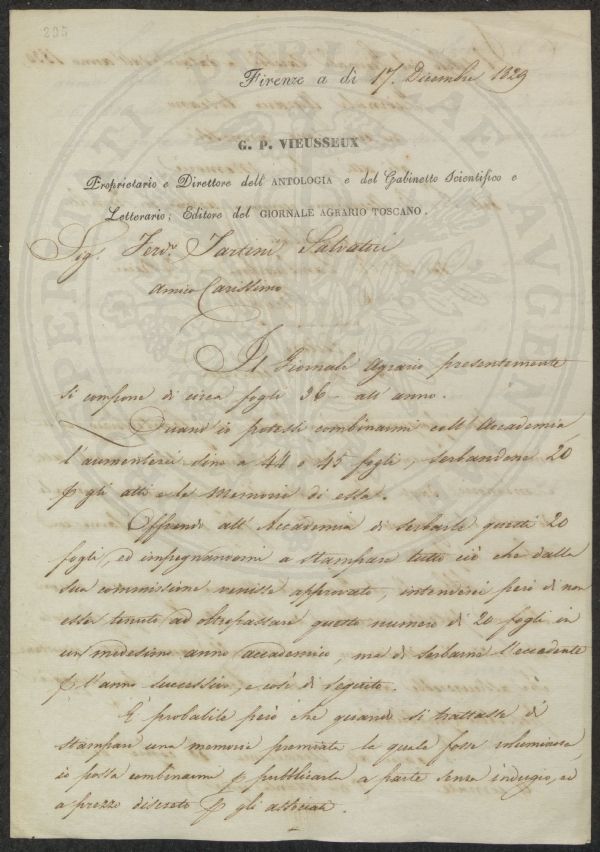 295
Firenze a dì 17. Dicembre 1829
G. P. VIEUSSEUX
Proprietario e Direttore dell' ANTOLOGIA e del Gabinetto Scientifico e
Letterario; Editore del GIORNALE AGRARIO TOSCANO.
Sig. Ferd. Tartini Salvatici
Amico Carissimo
Il Giornale Agrario presentemente
si compone di circa fogli 36 - all' anno.
Quand' io potessi combinarmi coll' Accademia
l'aumenterei sino a 44 o 45 fogli, serbandone 20
p gli atti e le Memorie di essa.
Offrendo all' Accademia di serbarle questi 20
fogli, ed impegnandomi a stampare tutto ciò che dalla
sua commissione venisse approvato, intenderei però di non
esser tenuto ad oltrepassare questo numero di 20 fogli in
un medesimo anno accademico, ma di serbarne l'eccedente
p l'anno successivo, e così di seguito.
È probabile però che quando si trattasse di
stampare una memoria premiata la quale fosse voluminosa,
io possa combinarmi p pubblicarla a parte senza indugio, ed
a prezzo discreto p gli associati.
PERTATI PUBLICAE AUGEN